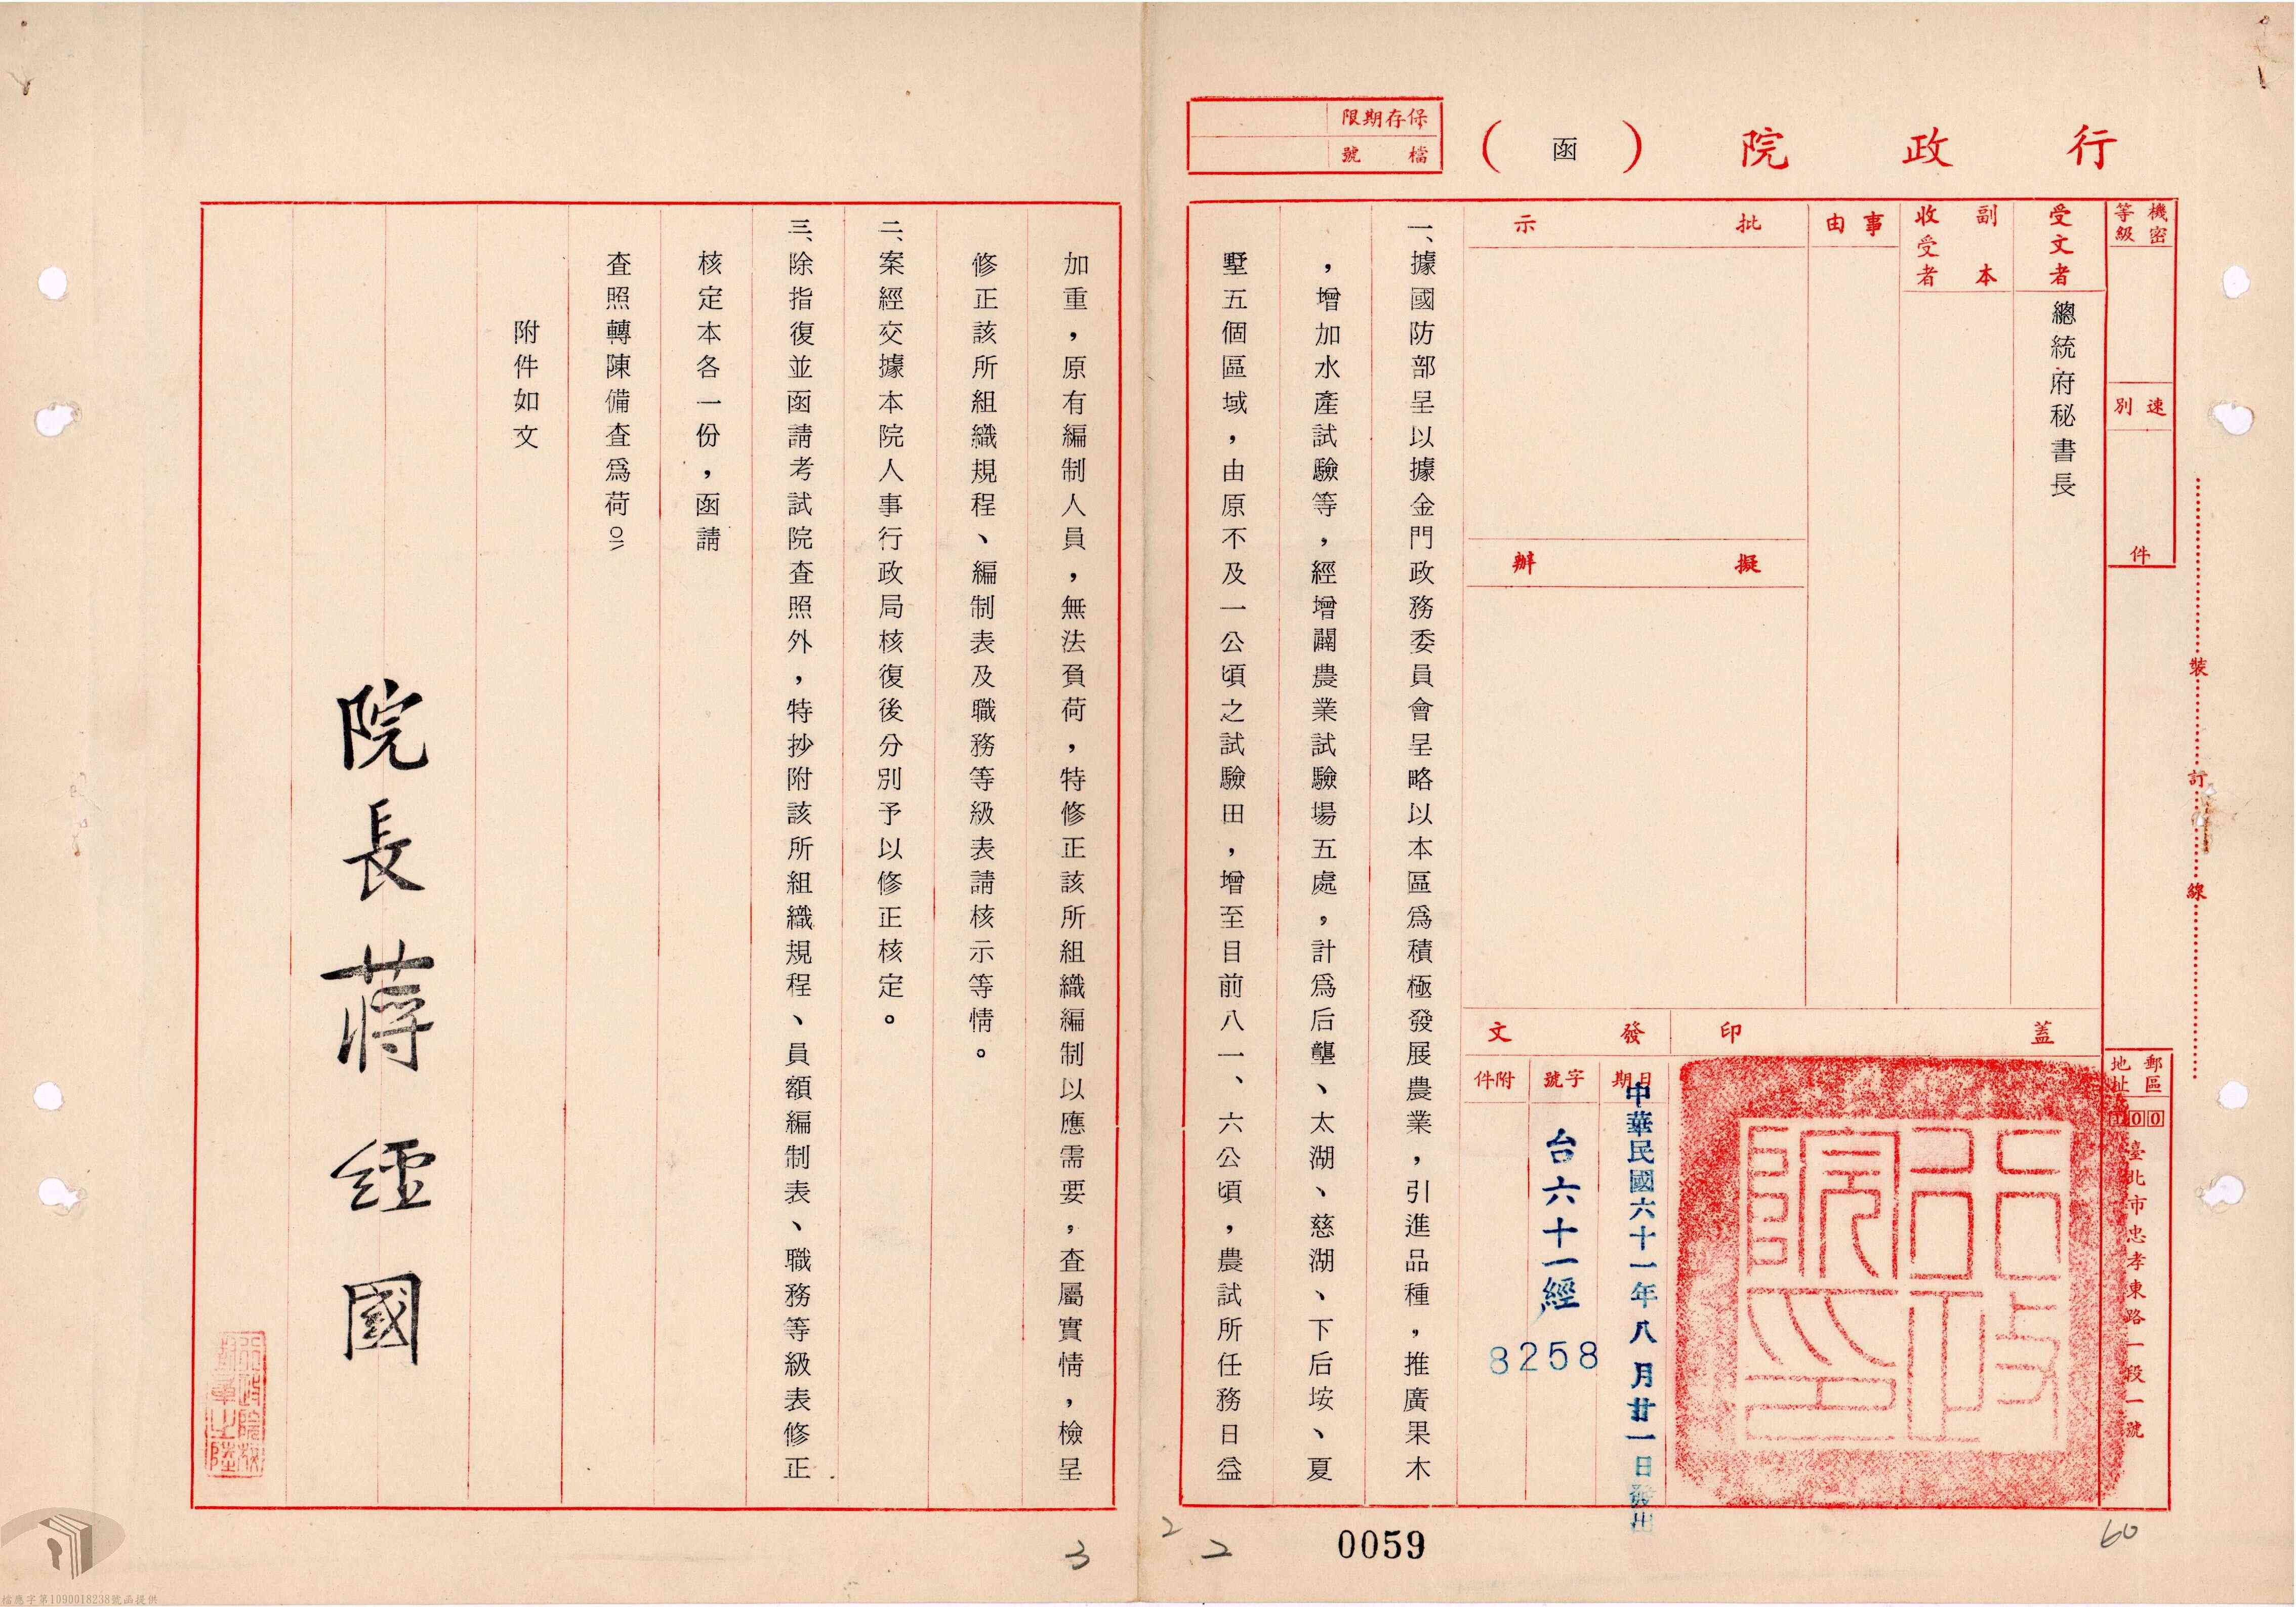 行政院
（函）
保存期限
檔號
機密等級
速別
件
受文者
總統府秘書長
副本收受者
事由
批示
擬辦
蓋印
發文
日期
中華民國六十一年八月廿一日發出
字號
台六十一經
8258
附件
郵區
地址
100
臺北市忠孝東路一段一號
裝
訂
線
行政院印
一、據國防部呈以據金門政務委員會呈略以本區爲積極發展農業，引進品種，推廣果木
，增加水產試驗等，經增闢農業試驗場五處，計爲后壟、太湖、慈湖、下后垵、夏
墅五個區域，由原不及一公頃之試驗田，增至目前八一、六公頃，農試所任務日益
加重，原有編制人員，無法負荷，特修正該所組織編制以應需要，查屬實情，檢呈
修正該所組織規程、編制表及職務等級表請核示等情。
二、案經交據本院人事行政局核復後分別予以修正核定。
三、除指復並函請考試院查照外，特抄附該所組織規程、員額編制表、職務等級表修正
核定本各一份，函請
查照轉陳備查爲荷。
附件如文
院長蔣經國
0059
2
2
3
60
檔應字第1090018238號函提供